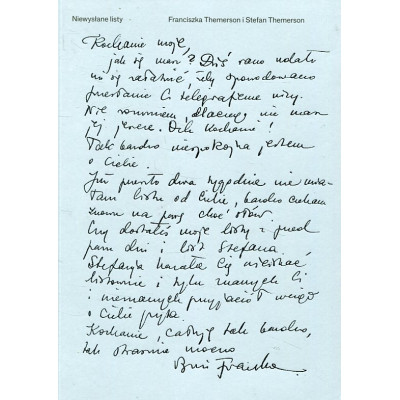 Niewysłane listy
Franciszka Themerson i Stefan Themerson
Kochanie moje,
jak się masz? Dziś rano udało
mi się załatwić, żeby spowodowano
przesłanie Ci telegraficznie wizy.
Nie rozumiem, dlaczego nie masz
jej jeszcze. Och kochanie!
Tak bardzo niespokojna jestem
o Ciebie.
Już prawie dwa tygodnie nie mia-
łam listu od Ciebie, bardzo czekam
znowu na parę choć słów.
Czy dostałeś moje listy z przed
paru dni i list Stefana
Stefania kazała Cię uściskać
listownie i tylu znanych Ci
i nieznanych przyjaciół wciąż
o Ciebie pyta.
Kochanie, całuję tak bardzo,
tak strasznie mocno